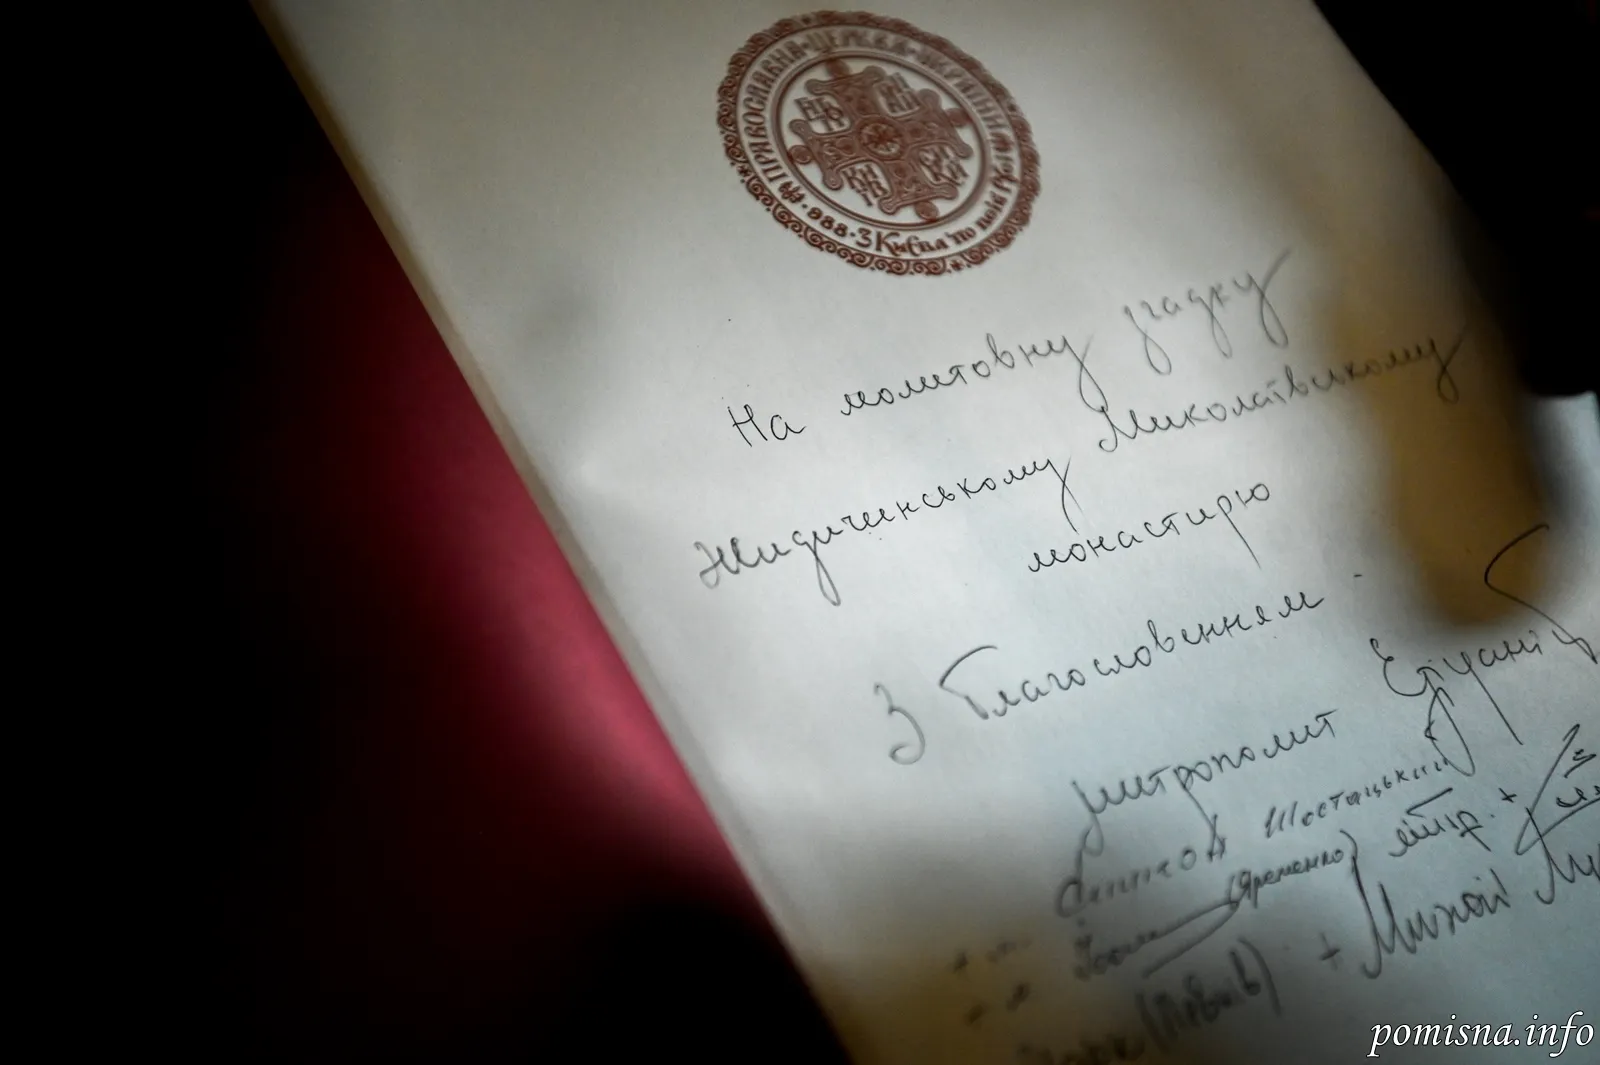 ПРАВОСЛАВНА·ЦЕРКВА·УКРАЇНИ
·988·З Києва по всій Русі
На молитовну згадку
Жидиченському Миколаївському
монастирю
З благословенням
митрополит Епіфаній
Симеон Шостацький митр.
(Яременко)
+ Михаїл
(Левків)
pomisna.info